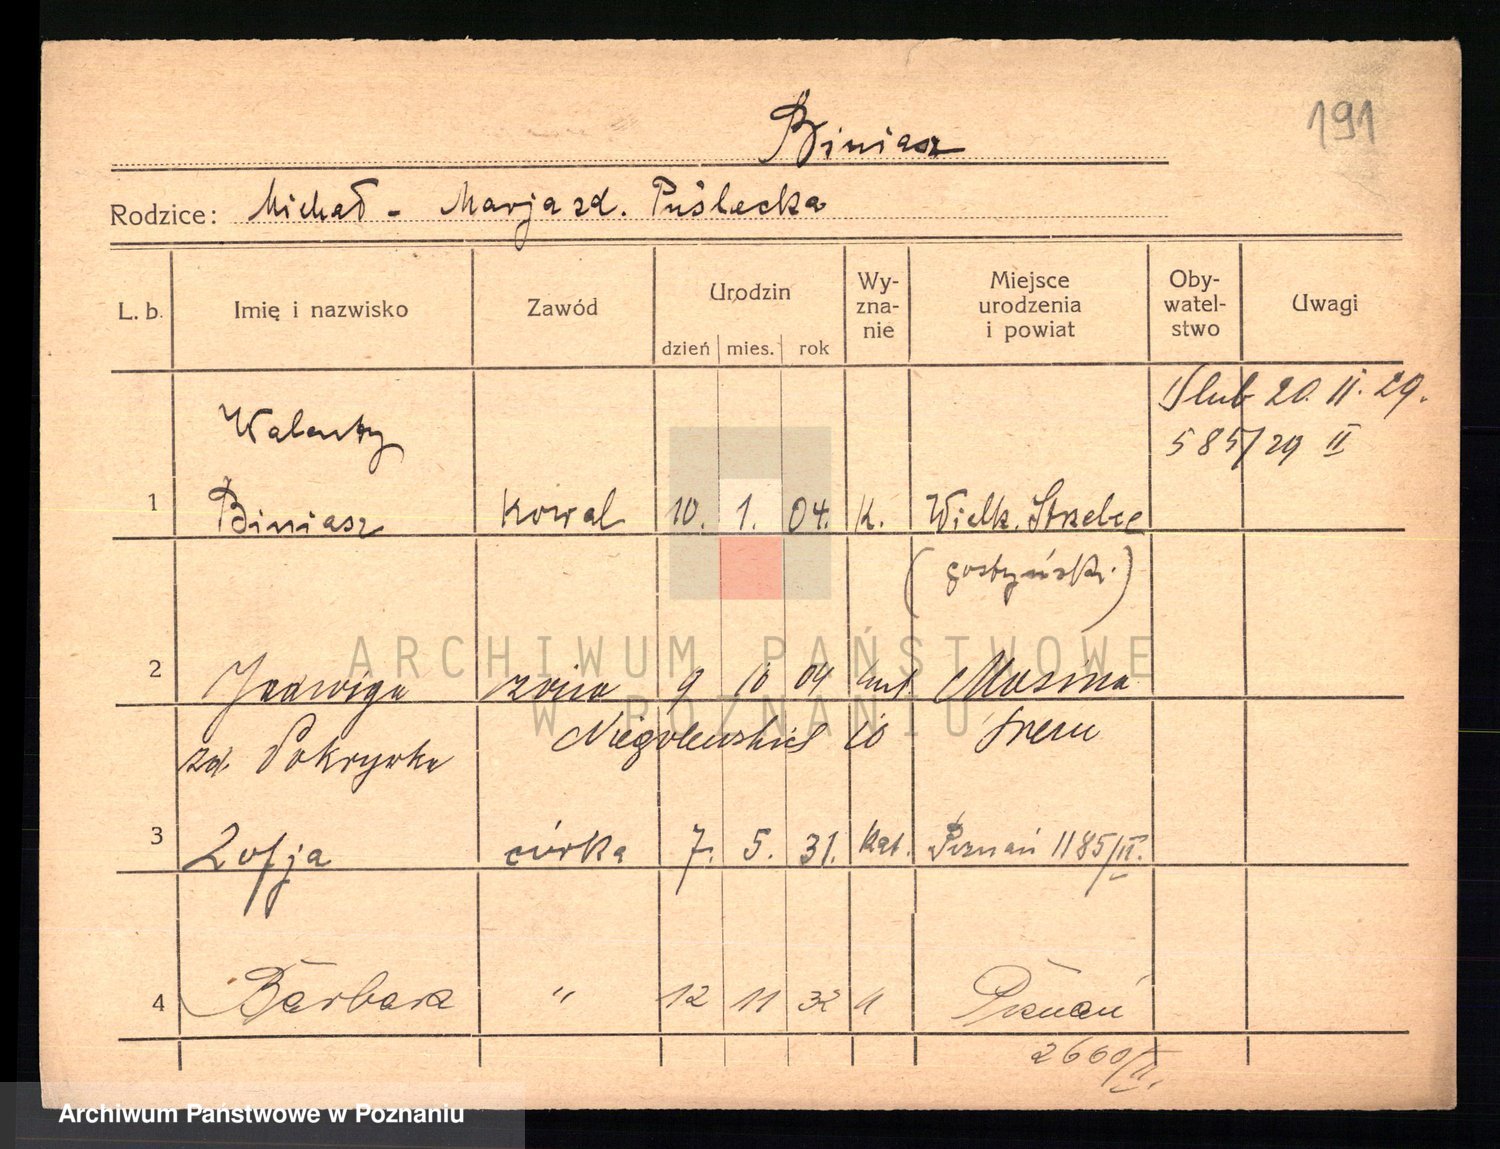 191
Biniasz
Rodzice: Michał - Marja zd. Puślecka
L. b. Imię i nazwisko Zawód Urodzin Wy-zna-nie Miejsce urodzenia i powiat Oby-watel-stwo Uwagi
dzień mies. rok
Ślub 20. II. 29.
585/29 II
Walenty
1 Biniasz kowal 10. 1. 04. k. Wielk. Strzelce
(gostyńsk.)
2 Jadwiga żona 9 10 04 Mosina
zd. Pokrywka Niegolewskich 10 Śrem
3 Zofja córka 7. 5. 31. kat. Poznań 1185/II.
4 Barbara " 12 11 32 " Poznań
2660/II.
ARCHIWUM PAŃSTWOWE
W POZNANIU
Archiwum Państwowe w Poznaniu